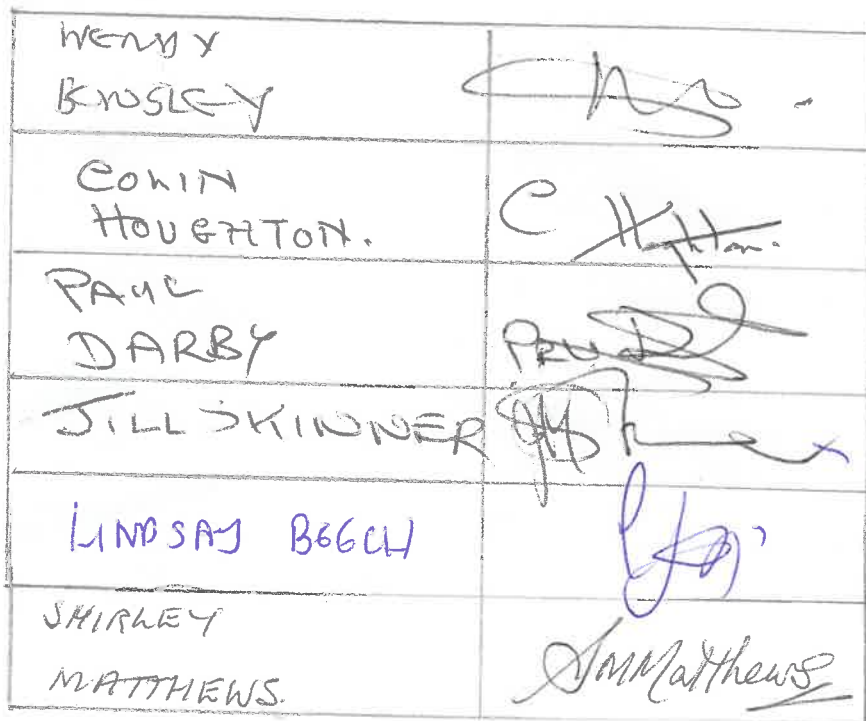 WENDY
KNOSLEY
COLIN
HOUGHTON.
C Houghton.
PAUL
DARBY
JILL SKINNER
LINDSAY BEECH
SHIRLEY
MATTHEWS.
SMMatthews